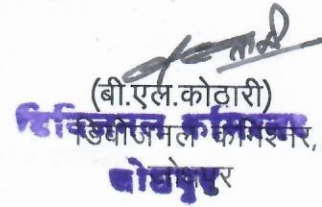 (बी.एल.कोठारी)
डिवीजनल कमिश्नर,
जोधपुर